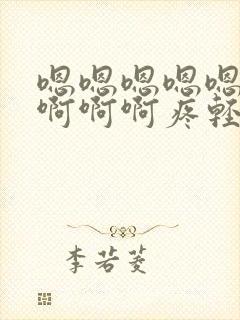 嗯嗯嗯嗯嗯
啊啊啊疼轻
李若菱